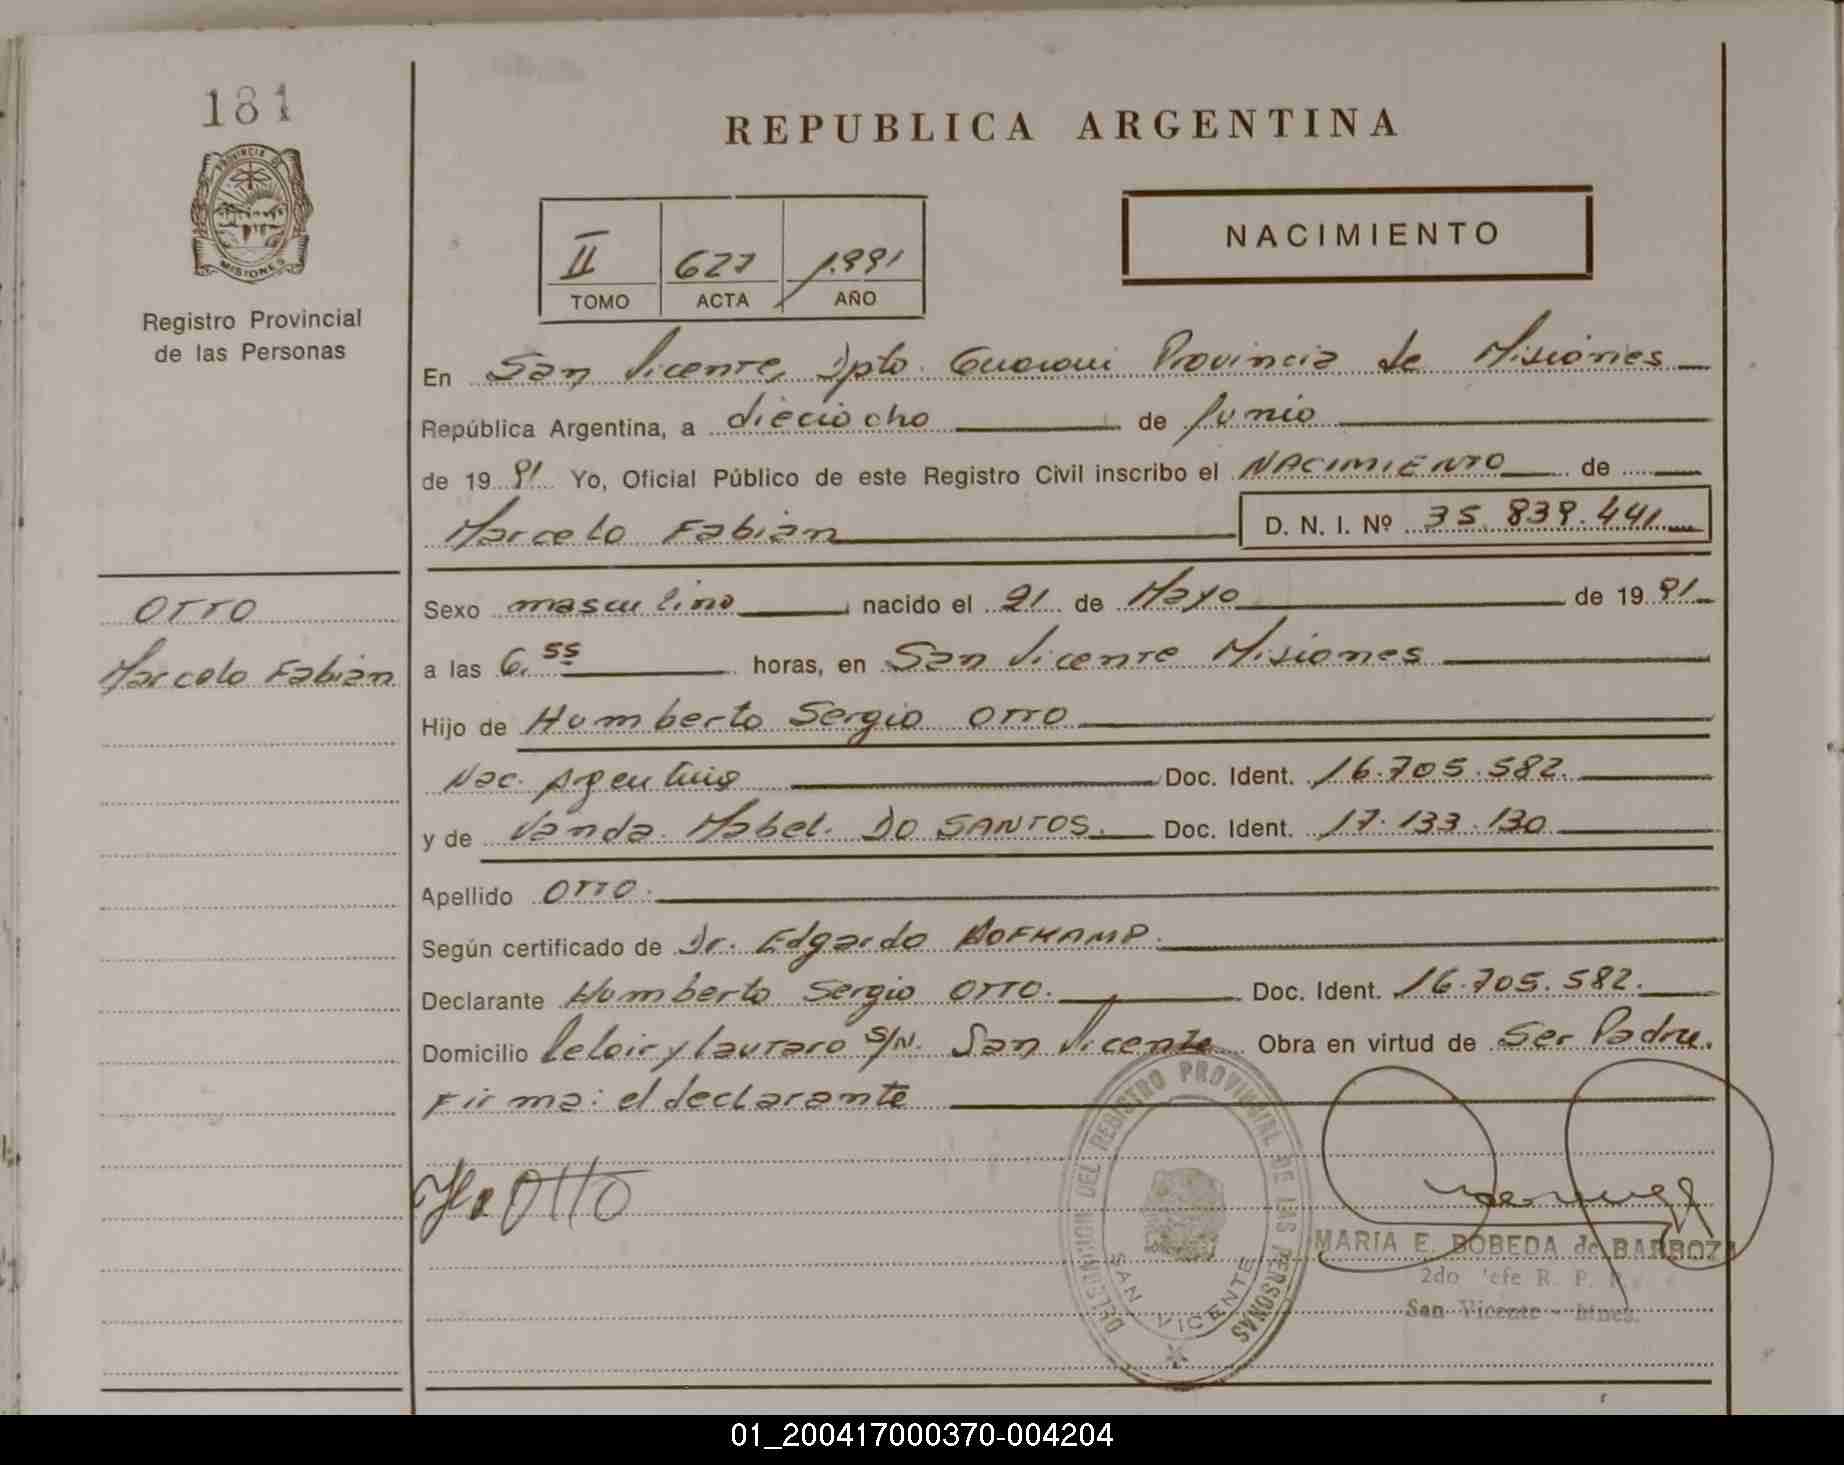 181
PROVINCIA DE
MISIONES
Registro Provincial
de las Personas
REPUBLICA ARGENTINA
II 627 1.991
TOMO ACTA AÑO
NACIMIENTO
En San Vicente, Dpto. Guarani Provincia de Misiones
República Argentina, a dieciocho de Junio
de 19 91 Yo, Oficial Público de este Registro Civil inscribo el NACIMIENTO de
Marcelo Fabián D. N. I. Nº 35.839.441
OTTO
Marcelo Fabián
Sexo masculino nacido el 21 de Mayo de 19 91
a las 6.55 horas, en San Vicente Misiones
Hijo de Humberto Sergio OTTO
Nac. Argentina Doc. Ident. 16.705.582.
y de Vanda Mabel. DO SANTOS. Doc. Ident. 17.133.130
Apellido OTTO.
Según certificado de Dr. Edgardo HOFKAMP.
Declarante Humberto Sergio OTTO. Doc. Ident. 16.705.582.
Domicilio Leloir y Lautaro S/N. San Vicente Obra en virtud de Ser Padre.
Firma: el declarante
Otto
DELEGACION DEL REGISTRO PROVINCIAL DE LAS PERSONAS
SAN VICENTE
MARIA E. BOBEDA de BARBOZA
2do Jefe R. P. P.
San Vicente - Mnes.
01_200417000370-004204